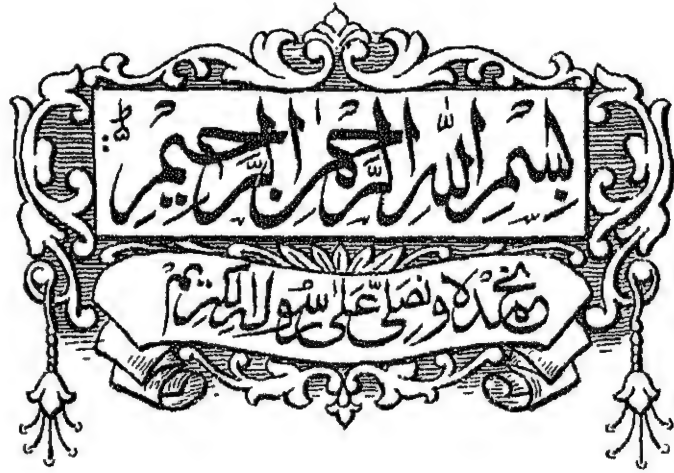 بِسْمِ اللّٰهِ الرَّحْمٰنِ الرَّحِيْمِ
نحمدہ ونصلی علیٰ رسولہ الکریم